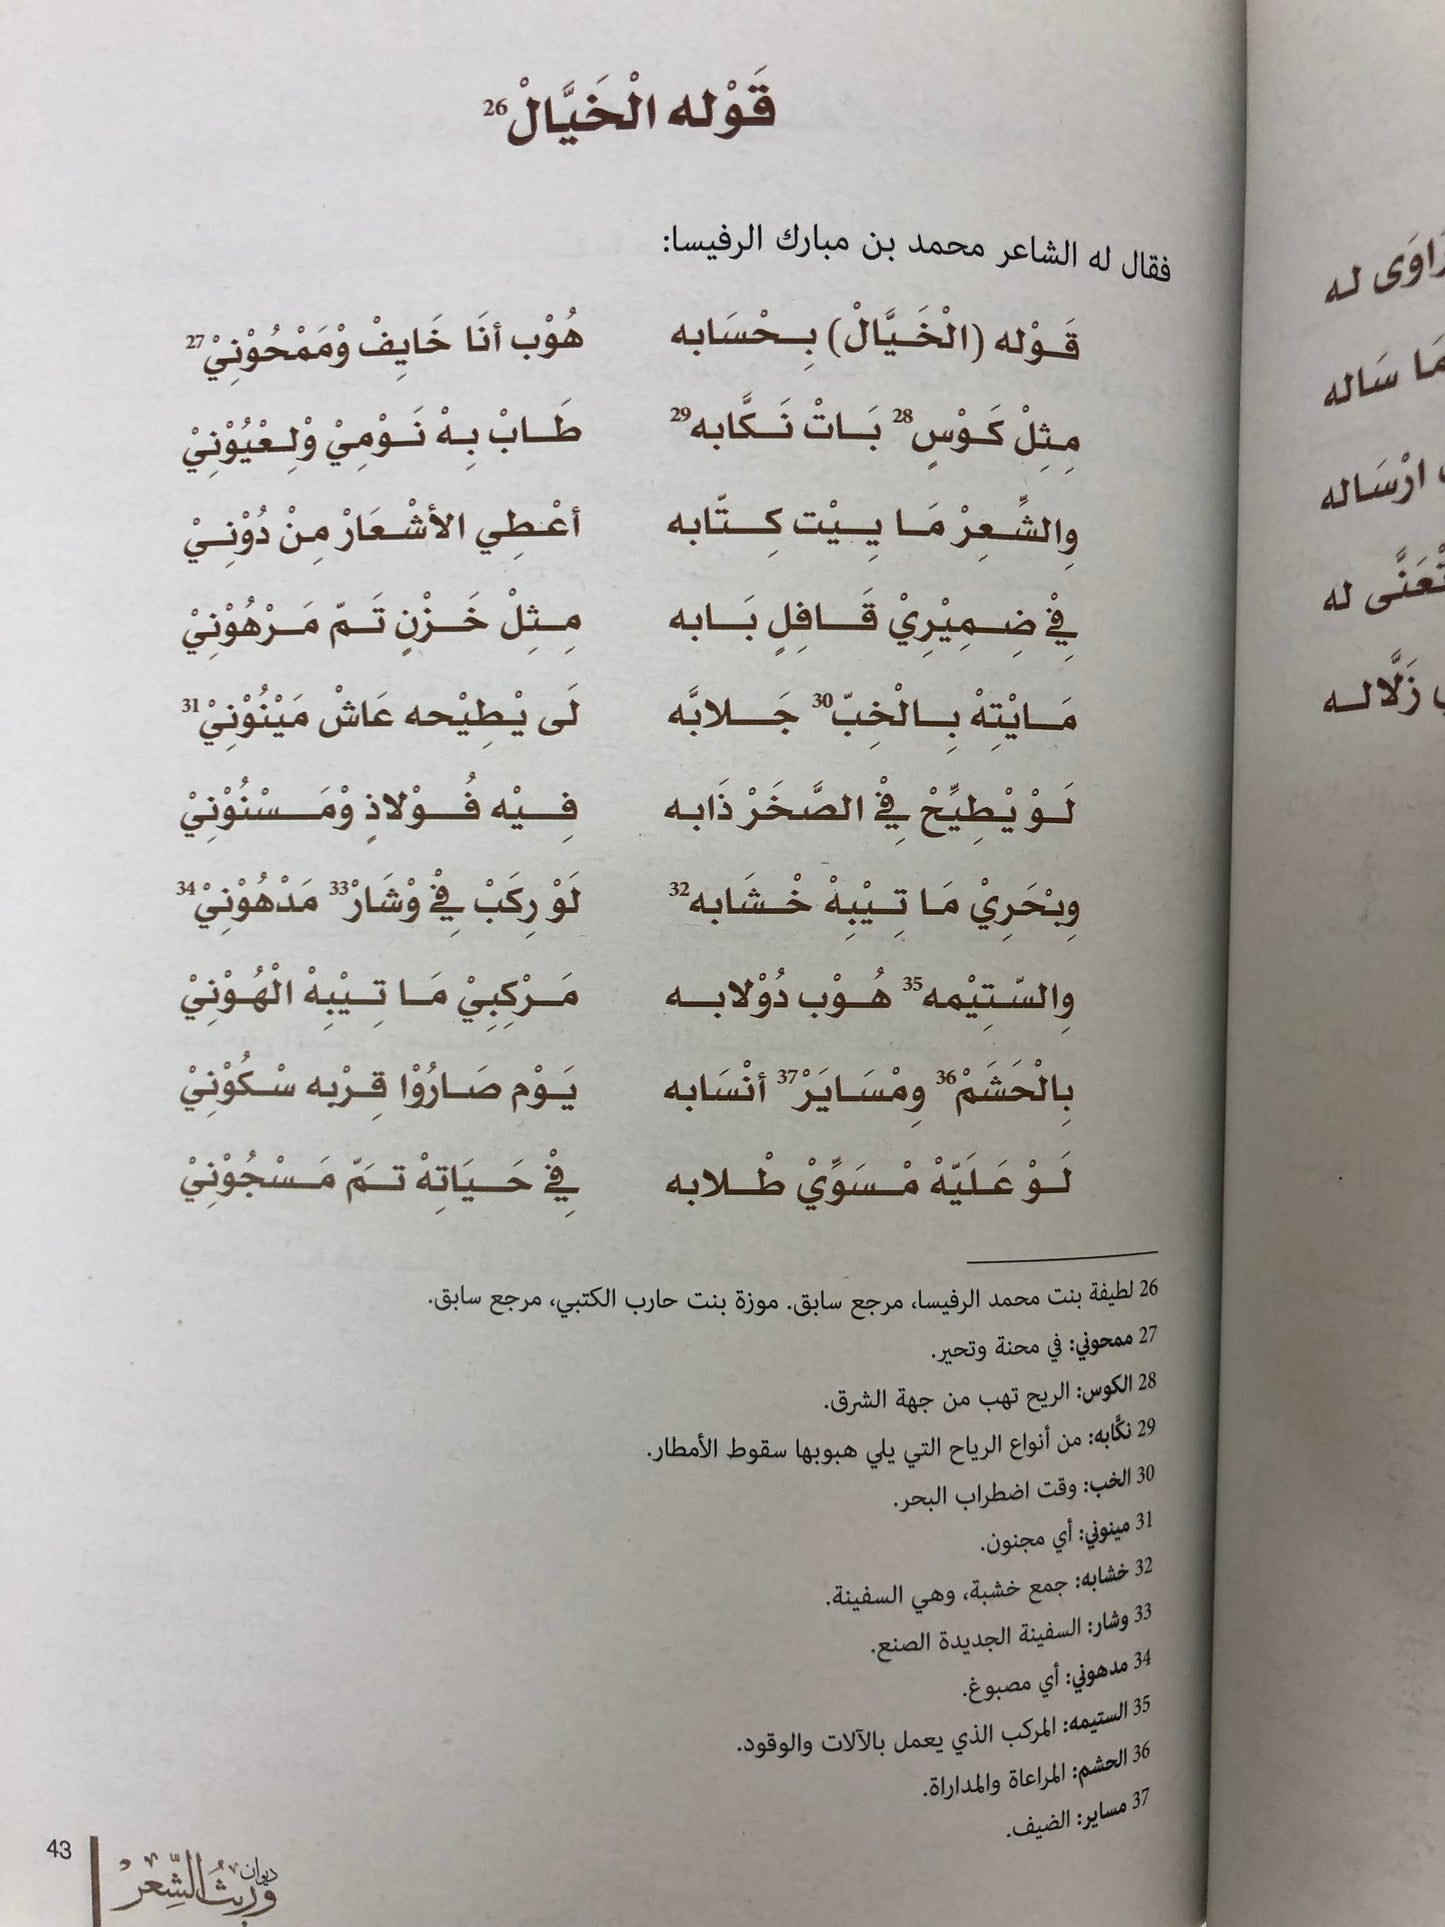 قَوْله الْخَيَّالْ 26
فقال له الشاعر محمد بن مبارك الرفيسا:
قَوْله (الْخَيَّالْ) بِحْسَابه هُوْب أنَا خَايِفْ وْمَمْحُوْنِيْ 27
مِثِلْ كَوْسٍ 28 بَاتْ نَكَّابه 29 طَابْ بِهْ نَوْمِيْ وْلِعْيُوْنِيْ
وِالشِّعِرْ مَا يِيْت كِتّابه أعْطِي الأشْعَارْ مِنْ دُوْنِيْ
فِيْ ضِمِيْرِيْ قَافِلٍ بَابه مِثِلْ خَزْنٍ تَمّ مَرْهُوْنِيْ
مَايْتِهْ بِالْخِبّ 30 جَلابَّه لَى يْطِيْحه عَاشْ مَيْنُوْنِيْ 31
لَوْ يْطِيِّحْ فِيْ الصَّخَرْ ذَابه فِيْه فُوْلاذٍ وْمَسْنُوْنِيْ
وِبْحَرِيْ مَا تِيْبِهْ خْشَابه 32 لَوْ رِكَبْ فِيْ وْشَارْ 33 مَدْهُوْنِيْ 34
وِالسّتِيْمه 35 هُوْب دُوْلابه مَرْكِبِيْ مَا تِيْبِهْ الْهُوْنِيْ
بِالْحَشَمْ 36 وِمْسَايَرْ 37 أنْسَابه يَوْم صَارُوْا قِرْبه سْكُوْنِيْ
لَوْ عَلَيّهْ مْسَوِّيْ طْلابه فِيْ حَيَاتِهْ تمَّ مَسْجُوْنِيْ
26 لطيفة بنت محمد الرفيسا، مرجع سابق. موزة بنت حارب الكتبي، مرجع سابق.
27 ممحوني: في محنة وتحير.
28 الكوس: الريح تهب من جهة الشرق.
29 نكَّابه: من أنواع الرياح التي يلي هبوبها سقوط الأمطار.
30 الخب: وقت اضطراب البحر.
31 مينوني: أي مجنون.
32 خشابه: جمع خشبة، وهي السفينة.
33 وشار: السفينة الجديدة الصنع.
34 مدهوني: أي مصبوغ.
35 الستيمه: المركب الذي يعمل بالآلات والوقود.
36 الحشم: المراعاة والمداراة.
37 مساير: الضيف.
43
ديوان
وريث الشِّعر
مَا سَاله
ارْسَاله
تْعَنَّى له
زَلَّاله